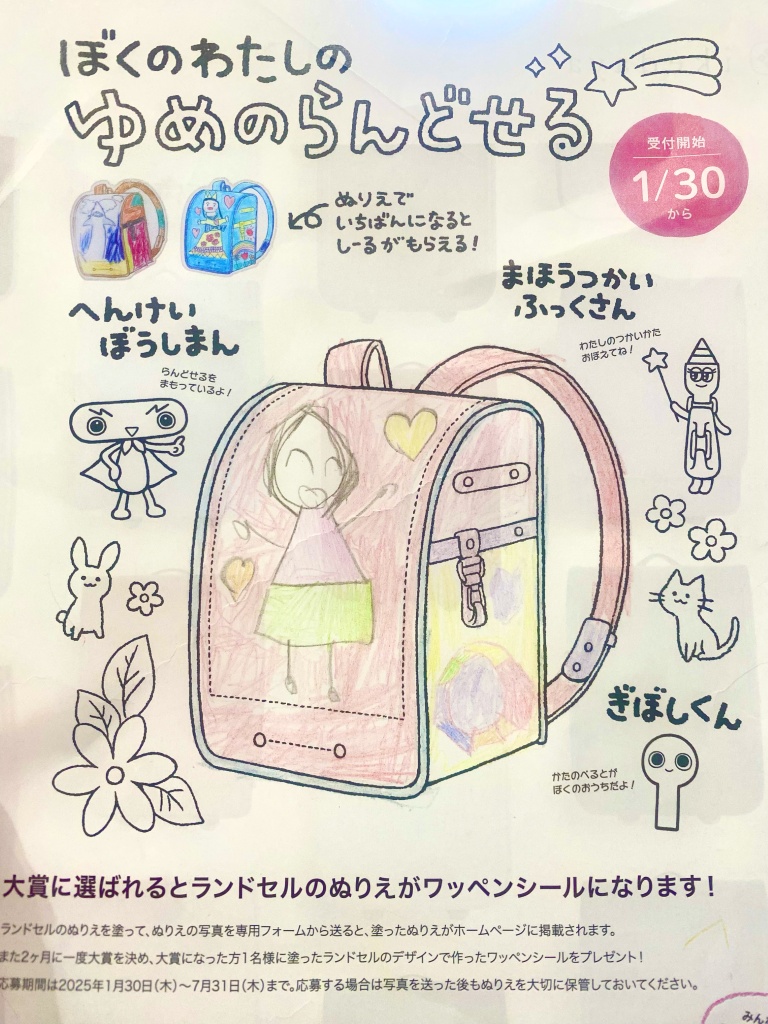 ぼくのわたしの
ゆめのらんどせる
受付開始
1/30
から
ぬりえで
いちばんになると
しーるがもらえる!
へんけい
ぼうしまん
らんどせるを
まもっているよ!
まほうつかい
ふっくさん
わたしのつかいかた
おぼえてね!
ぎぼしくん
かたのべるとが
ぼくのおうちだよ!
大賞に選ばれるとランドセルのぬりえがワッペンシールになります!
ランドセルのぬりえを塗って、ぬりえの写真を専用フォームから送ると、塗ったぬりえがホームページに掲載されます。
また2ヶ月に一度大賞を決め、大賞になった方1名様に塗ったランドセルのデザインで作ったワッペンシールをプレゼント!
応募期間は2025年1月30日(木)〜7月31日(木)まで。応募する場合は写真を送った後もぬりえを大切に保管しておいてください。